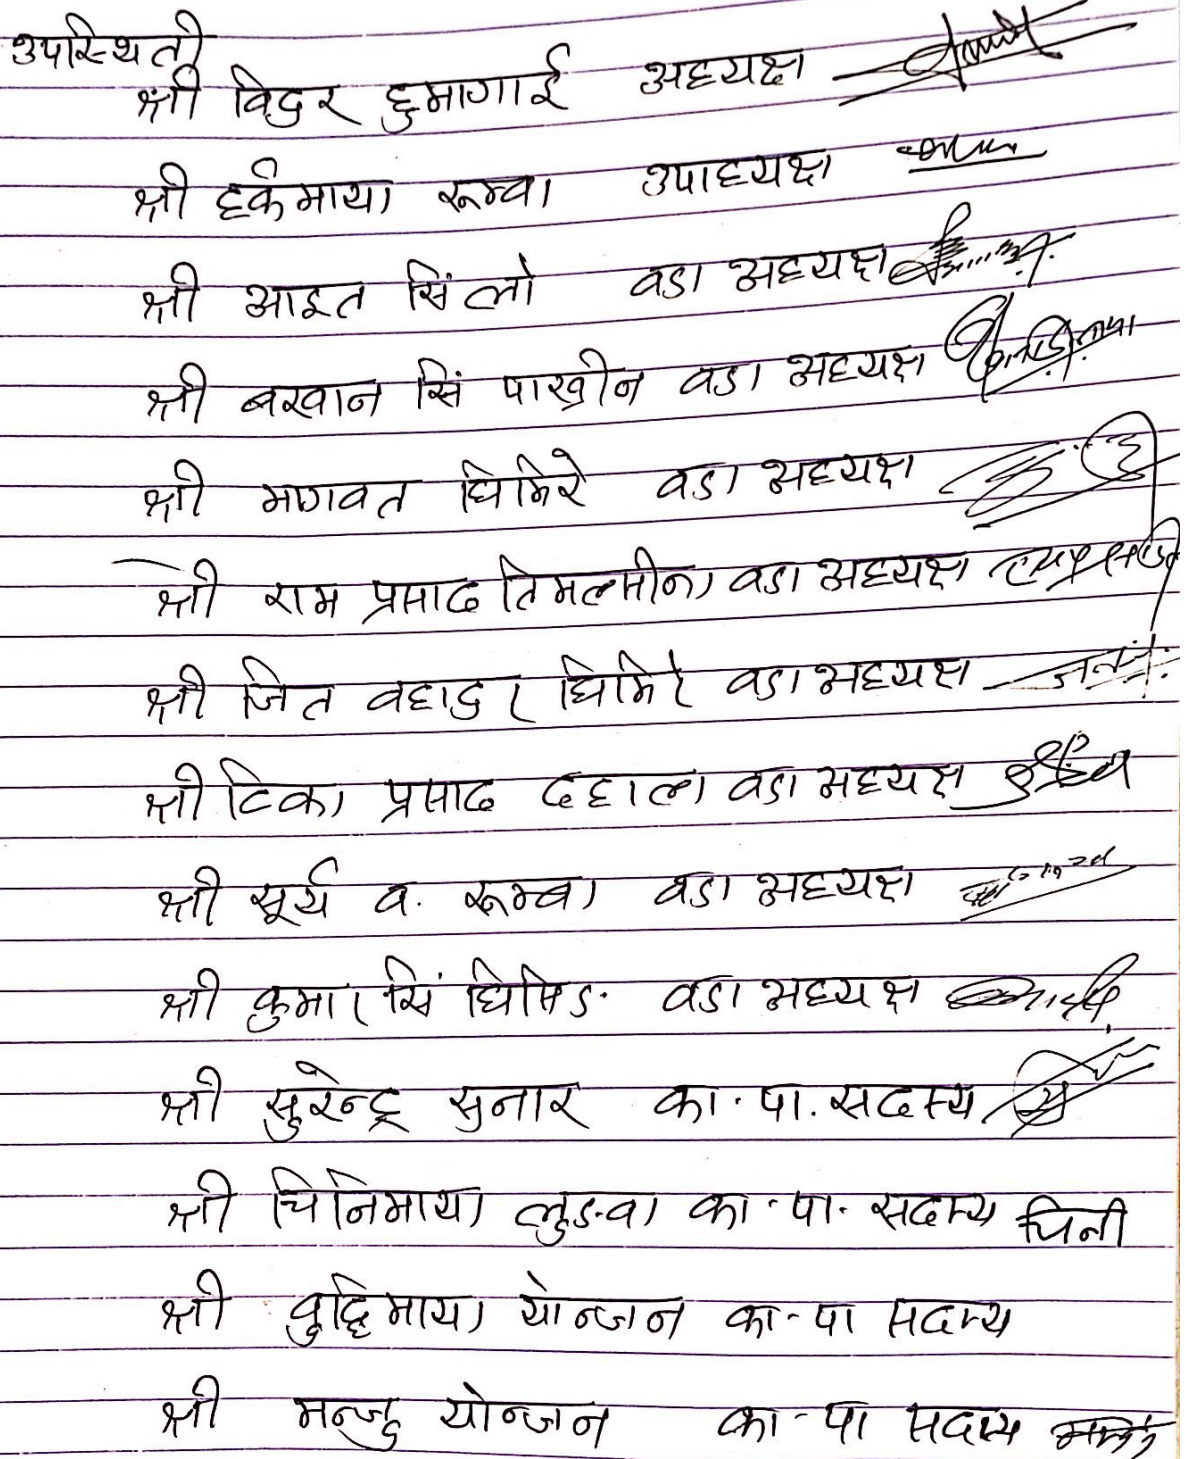 उपस्थिती
श्री विदुर हुमागाई अध्यक्ष
श्री हर्कमाया रूम्बा उपाध्यक्ष
श्री आइत सिं लो वडा अध्यक्ष
श्री बखान सिं पाख्रीन वडा अध्यक्ष
श्री भागवत घिमिरे वडा अध्यक्ष
श्री राम प्रसाद तिमल्सीना वडा अध्यक्ष
श्री जित वहादुर घिमिरे वडा अध्यक्ष
श्री टिका प्रसाद दहाल वडा अध्यक्ष
श्री सूर्य व. रूम्बा वडा अध्यक्ष
श्री कुमार सिं घिसिङ वडा अध्यक्ष
श्री सुरेन्द्र सुनार का.पा.सदस्य
श्री चिनिमाया लुङवा का.पा. सदस्य चिनी
श्री वुद्धिमाया योन्जन का-पा सदस्य
श्री मन्जु योन्जन का-पा सदस्य